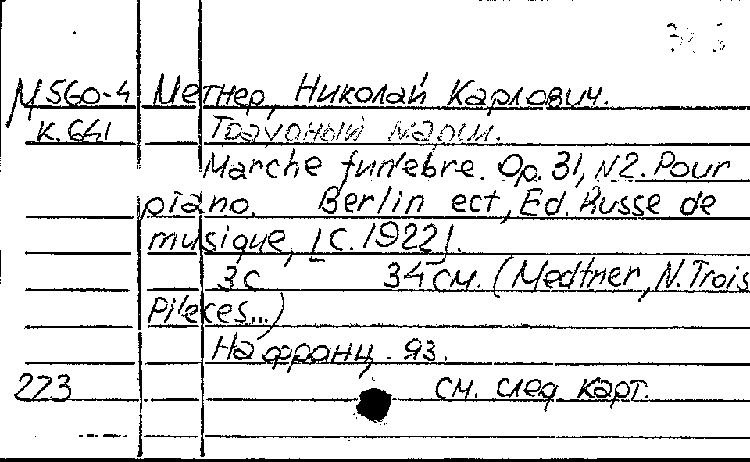 М560-4 Метнер, Николай Карлович.
к.661 Траурный марш.
Marche funèbre. Op. 31, N2. Pour
piano. Berlin ect, Ed. Russe de
musique, [C. 1922].
3 с 34 см. (Medtner, N. Trois
Pièces...)
На франц. яз.
223 см. след. карт.